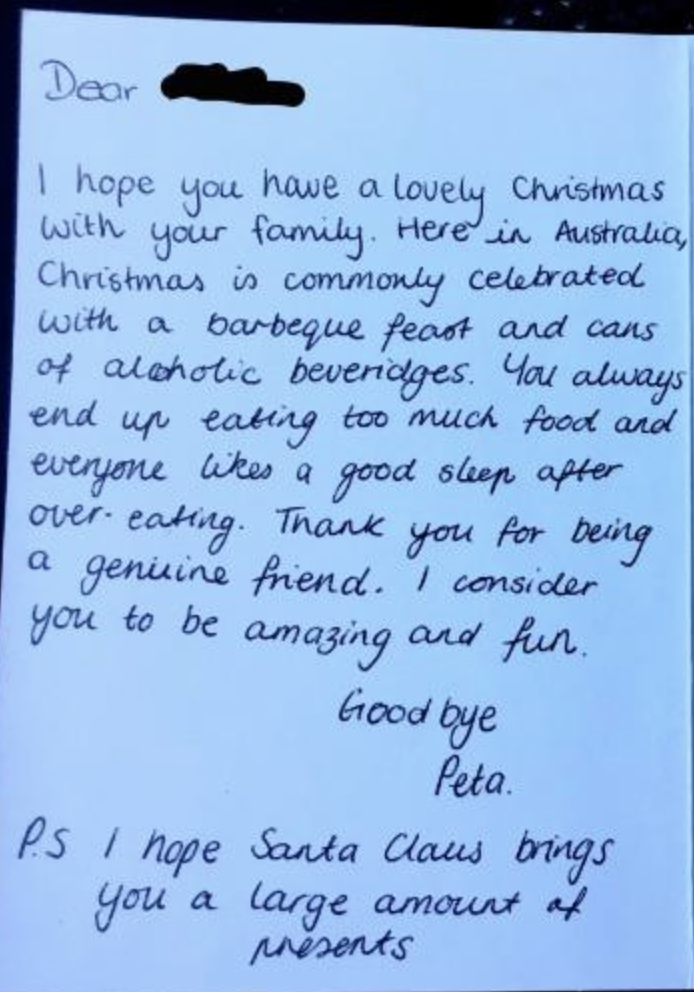 Dear
I hope you have a lovely Christmas
with your family. Here in Australia,
Christmas is commonly celebrated
with a barbeque feast and cans
of alcoholic beveridges. You always
end up eating too much food and
everyone likes a good sleep after
over-eating. Thank you for being
a genuine friend. I consider
you to be amazing and fun.
Good bye
Peta.
P.S I hope Santa Claus brings
you a large amount of
presents